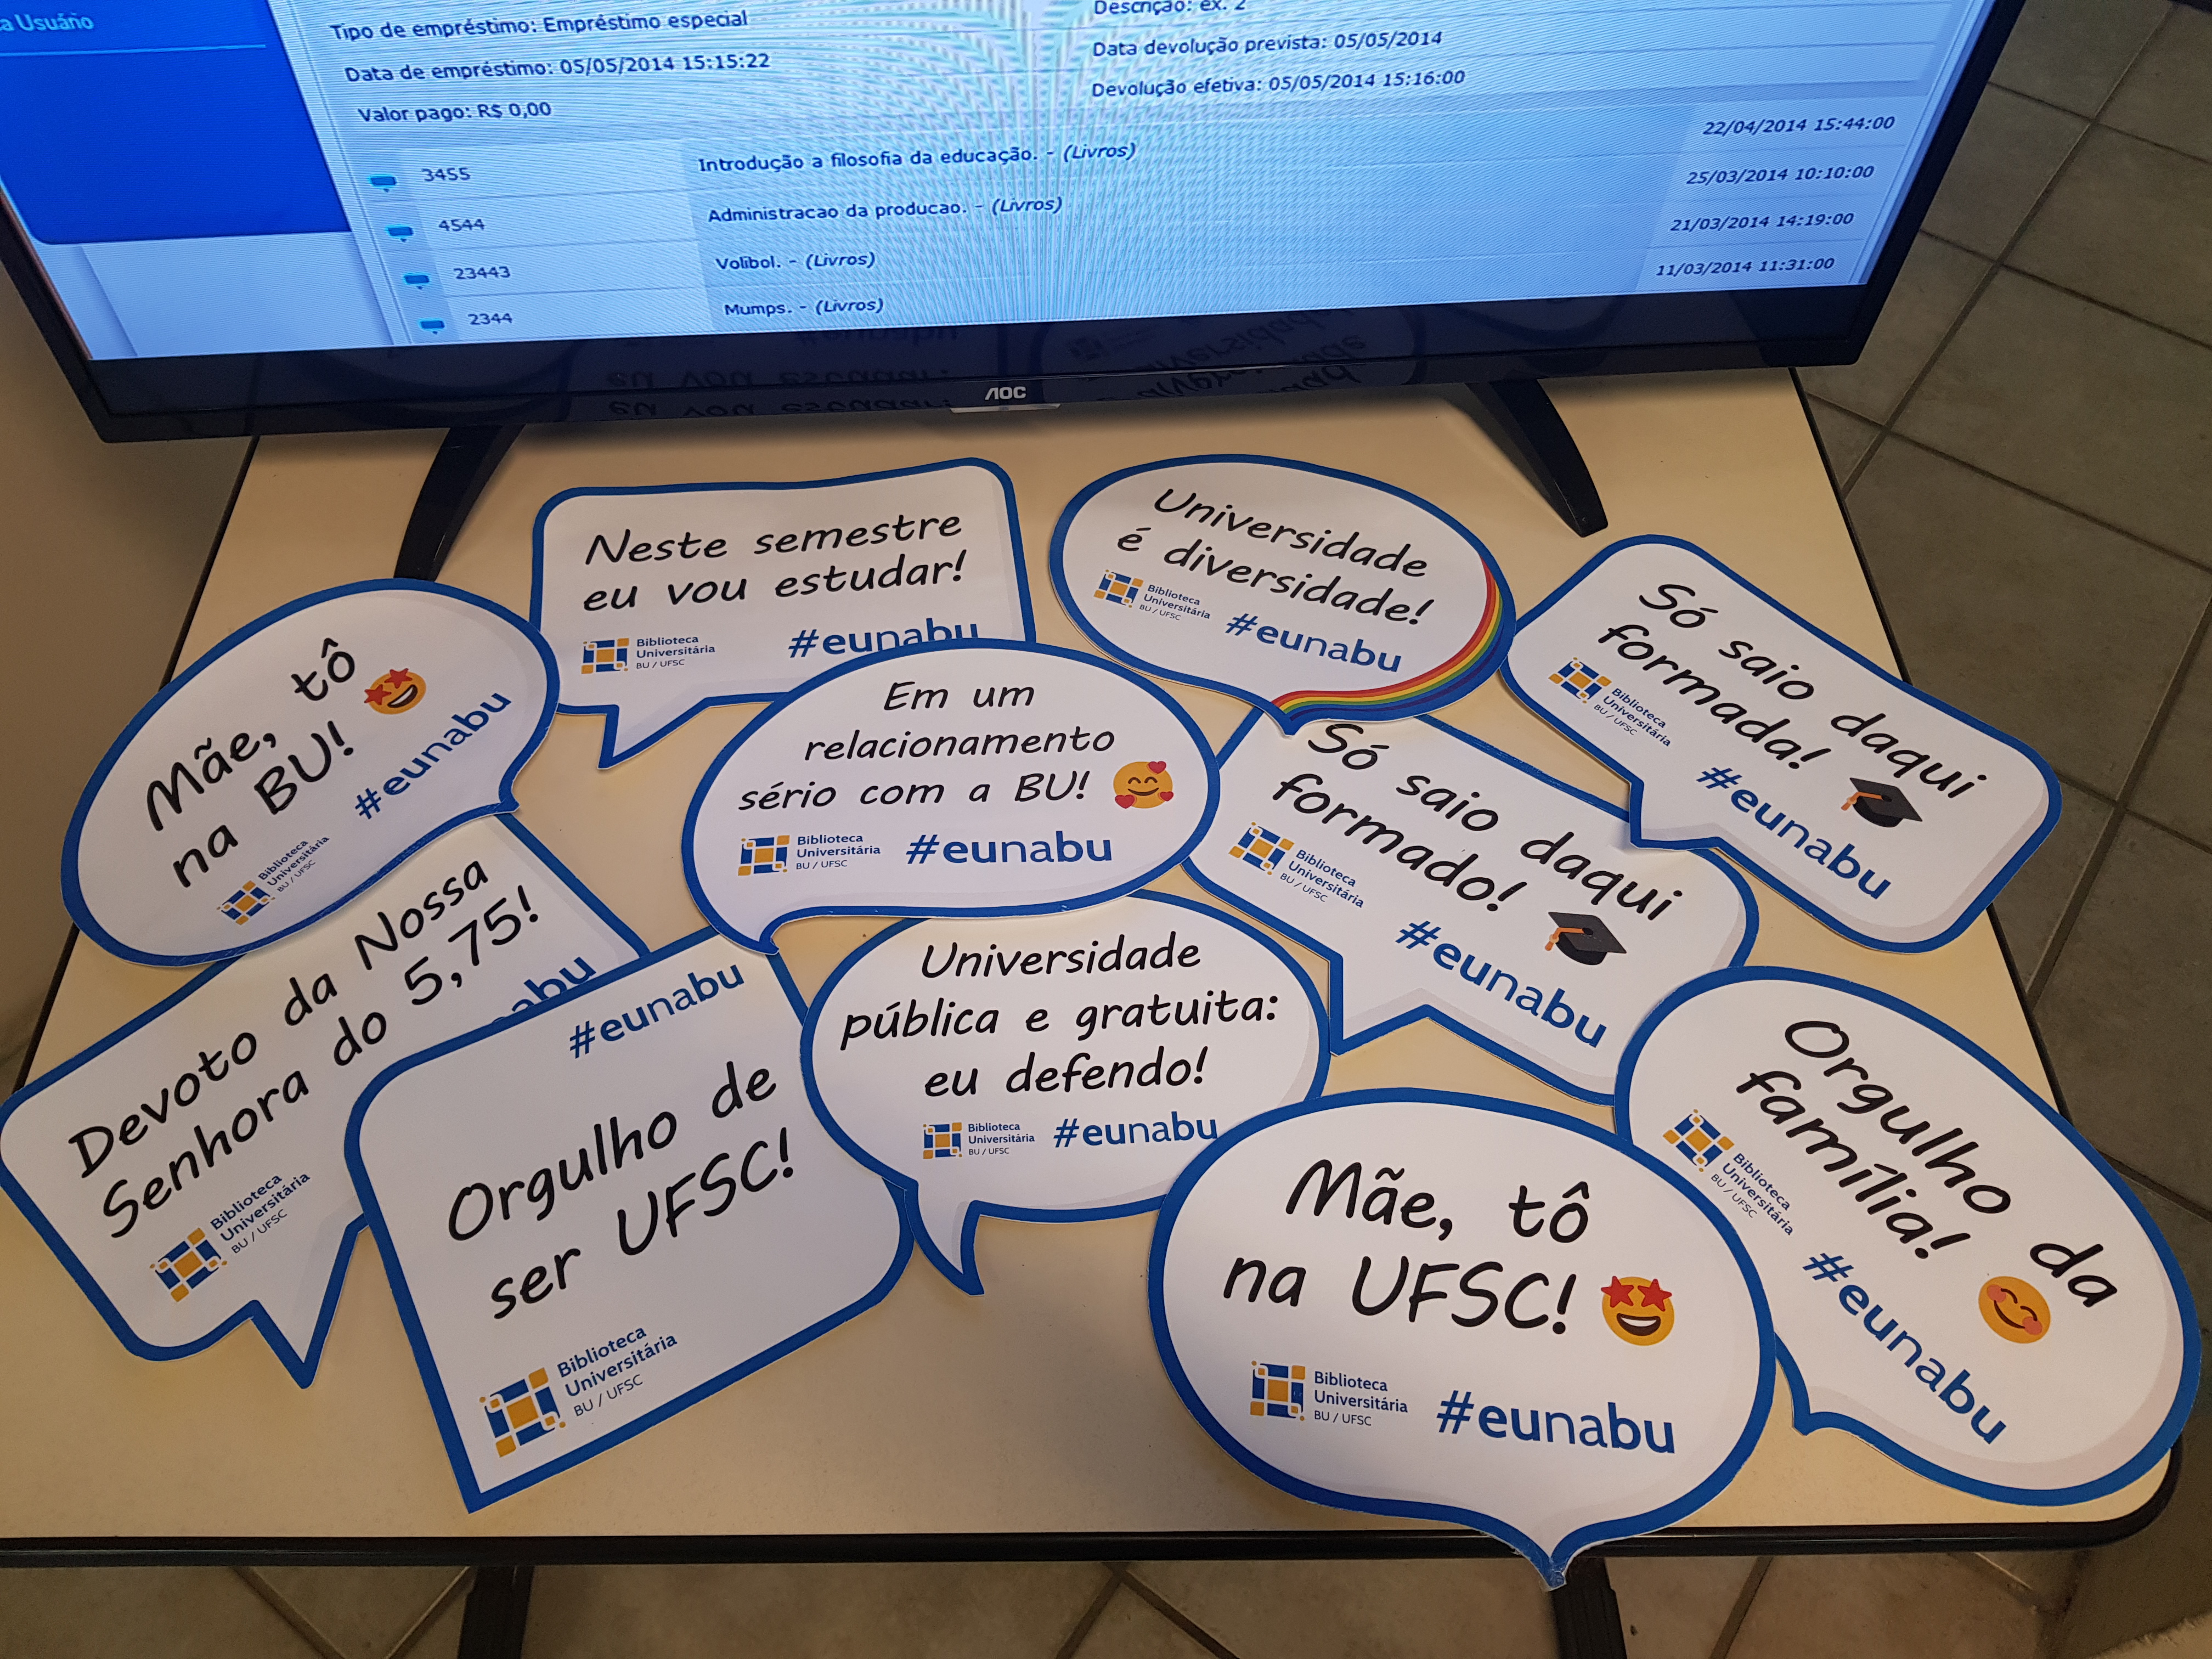 a Usuário
Tipo de empréstimo: Empréstimo especial
Descrição: ex. 2
Data de empréstimo: 05/05/2014 15:15:22
Data devolução prevista: 05/05/2014
Valor pago: R$ 0,00
Devolução efetiva: 05/05/2014 15:16:00
22/04/2014 15:44:00
3455
Introdução a filosofia da educação. - (Livros)
25/03/2014 10:10:00
4544
Administracao da producao. - (Livros)
21/03/2014 14:19:00
23443
Volibol. - (Livros)
11/03/2014 11:31:00
2344
Mumps. - (Livros)
AOC
Neste semestre
eu vou estudar!
Biblioteca
Universitária
BU / UFSC
#eunabu
Universidade
é diversidade!
Biblioteca
Universitária
BU / UFSC
#eunabu
Só saio daqui
formada!
Biblioteca
Universitária
BU / UFSC
#eunabu
Mãe, tô
na BU!
Biblioteca
Universitária
BU / UFSC
#eunabu
Em um
relacionamento
sério com a BU!
Biblioteca
Universitária
BU / UFSC
#eunabu
Só saio daqui
formado!
Biblioteca
Universitária
BU / UFSC
#eunabu
Devoto da Nossa
Senhora do 5,75!
Biblioteca
Universitária
BU / UFSC
abu
#eunabu
Orgulho de
ser UFSC!
Biblioteca
Universitária
BU / UFSC
Universidade
pública e gratuita:
eu defendo!
Biblioteca
Universitária
BU / UFSC
#eunabu
Mãe, tô
na UFSC!
Biblioteca
Universitária
BU / UFSC
#eunabu
Orgulho da
família!
Biblioteca
Universitária
BU / UFSC
#eunabu